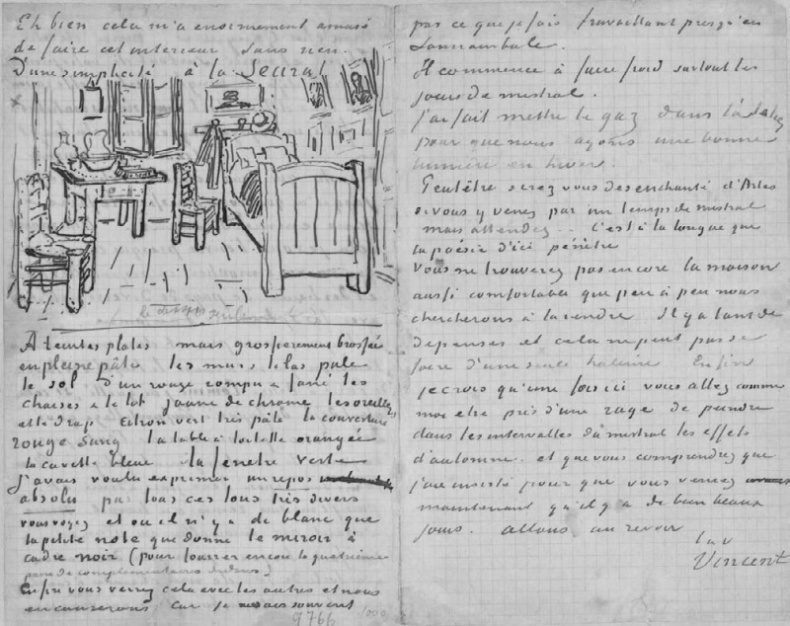 Eh bien cela m'a enormement amusé
de faire cet interieur sans rien.
D'une simplicité à la Seurat
A teintes plates mais grossierement brossées
en pleine pâte les murs lilas pale
le sol d'un rouge rompu & fané les
chaises & le lit jaune de chrome les oreillers
et le drap citron vert très pâle la couverture
rouge sang la table à toilette orangée
la cuvette bleue la fenetre verte
J'avais voulu exprimer un repos
absolu par tous ces tons très divers
vous voyez et où il n'y a de blanc que
la petite note que donne le miroir à
cadre noir (pour fourrer encore la quatrième
paire de complementaires dedans)
Enfin vous verrez cela avec les autres et nous
en causerons car je ne sais souvent
9766
pas ce que je fais travaillant presqu'en
somnambule.
Il commence à faire froid surtout les
jours de mistral.
J'ai fait mettre le gaz dans l'atelier
pour que nous ayons une bonne
lumière en hiver.
Peutêtre serez vous desenchanté d'Arles
si vous y venez par un temps de mistral
mais attendez.. C'est à la longue que
la poésie d'ici pénètre
Vous ne trouverez pas encore la maison
aussi comfortable que peu à peu nous
chercherons à la rendre Il y a tant de
depenses et cela ne peut pas se
faire d'une seule haleine Enfin
je crois qu'une fois ici vous allez comme
moi etre pris d'une rage de peindre
dans les intervalles du mistral les effets
d'automne. et que vous comprendrez que
j'aie insisté pour que vous venez
maintenant qu'il y a de bien beaux
jours. allons au revoir
t. à v.
Vincent